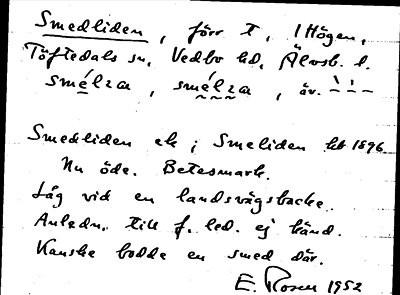 Smedliden, förr t, 1 Högen,
Töftedals sn, Vedbo hd, Älvsb. l.
smé̱lza, smélza, äv.
Smedliden ek; Smeliden hb 1896.
Nu öde. Betesmark.
Låg vid en landsvägsbacke.
Anledn. till f. led. ej känd.
Kanske bodde en smed där.
E. Rosen 1952